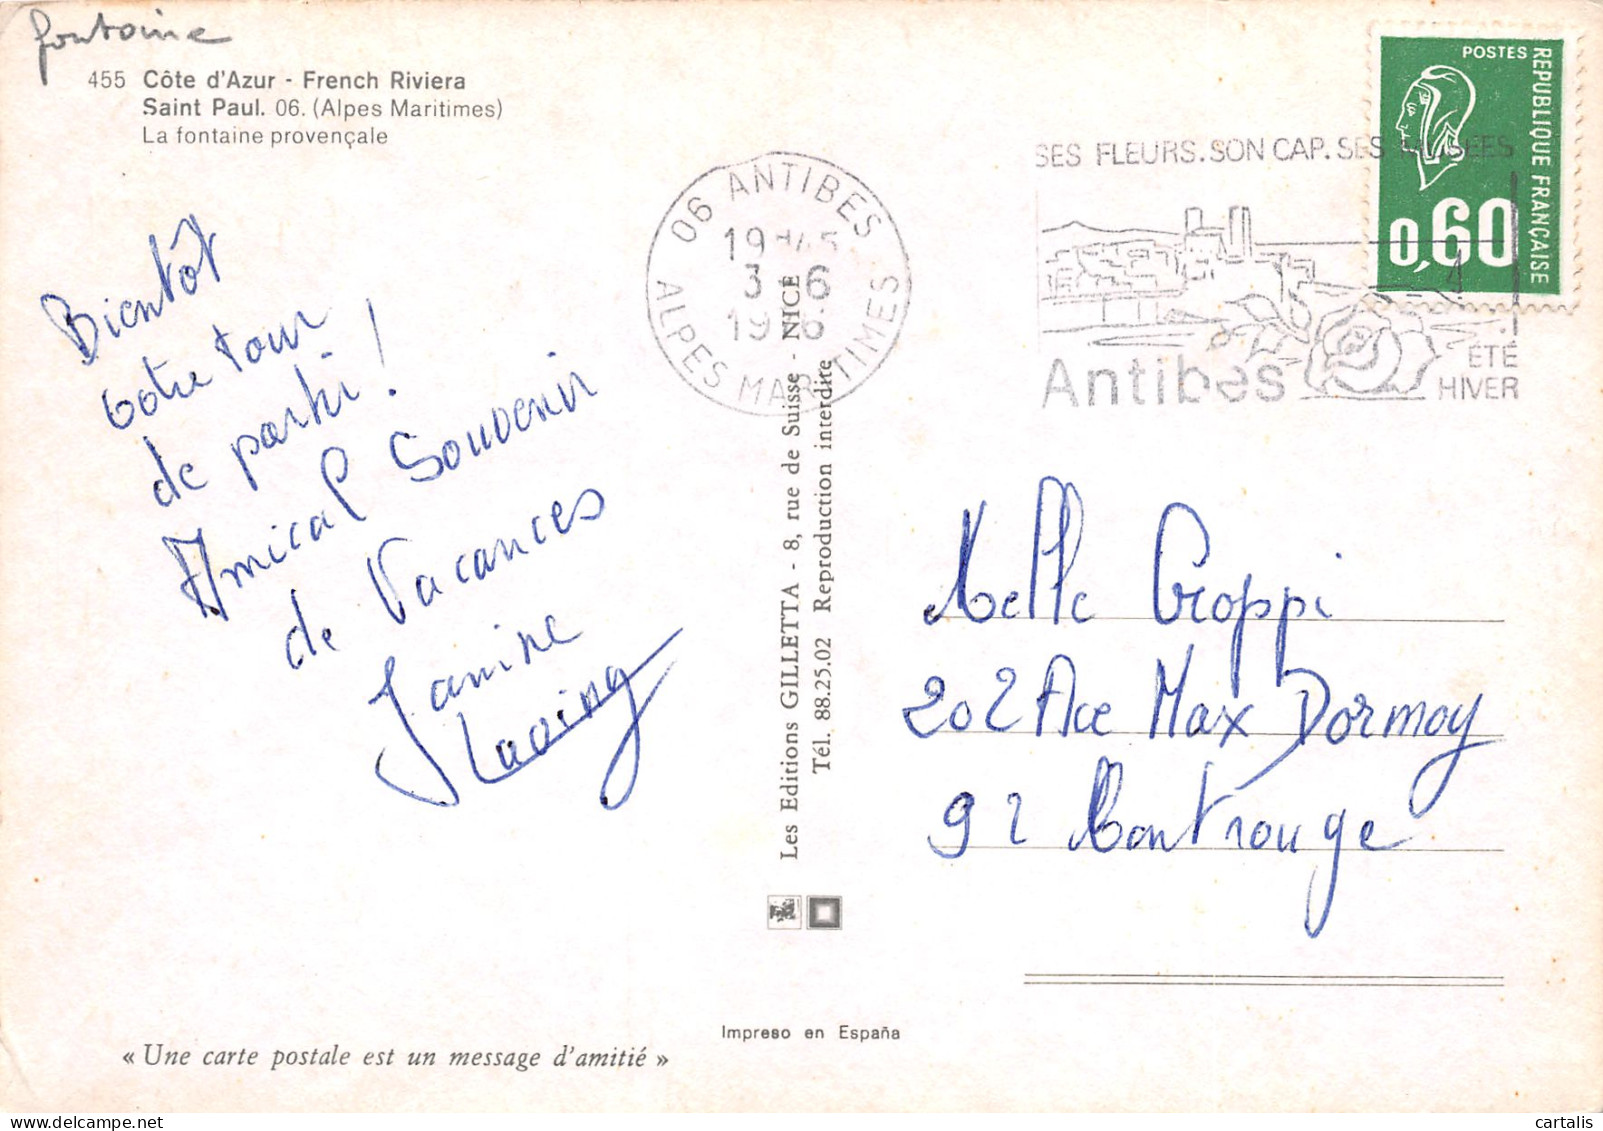 fontaine
455 Côte d'Azur - French Riviera
Saint Paul. 06. (Alpes Maritimes)
La fontaine provençale
Bientôt
votre tour
de partir !
Amical Souvenir
de Vacances
Janine
06 ANTIBES
3 - 6
ALPES MARITIMES
SES FLEURS. SON CAP. SES MUSEES
Antibes
ÉTÉ
HIVER
POSTES
REPUBLIQUE FRANÇAISE
0,60
Les Editions GILLETTA - 8, rue de Suisse - NICE
Tél. 88.25.02 Reproduction interdite
Melle Croppi
202 Ave Max Dormoy
92 Montrouge
Impreso en España
« Une carte postale est un message d'amitié »
cartalis